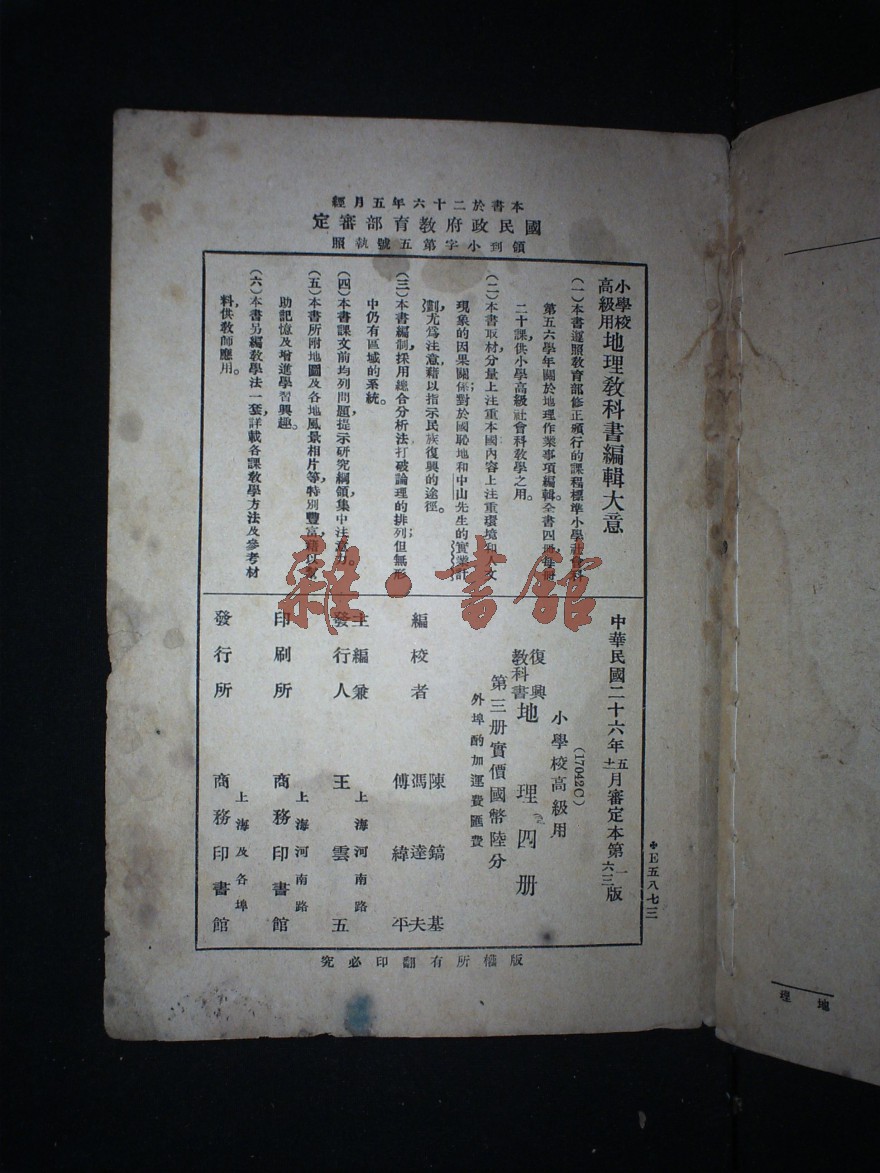 本書於二十六年五月經
國民政府教育部審定
領到小字第五號執照
小學校
高級用
地理教科書編輯大意
(一)本書遵照教育部修正頒行的課程標準小學社會科
第五六學年關於地理作業事項編輯。全書四册,每册
二十課,供小學高級社會科教學之用。
(二)本書取材,分量上注重本國,內容上注重環境和人文
現象的因果關係;對於國恥地和中山先生的實業計
劃,尤爲注意,藉以指示民族復興的途徑。
(三)本書編制,採用總合分析法,打破論理的排列;但無形
中仍有區域的系統。
(四)本書課文前均列問題,提示研究綱領,集中注意力。
(五)本書所附地圖及各地風景相片等,特別豐富,藉以
助記憶及增進學習興趣。
(六)本書另編教學法一套,詳載各課教學方法及參考材
料,供教師應用。
中華民國二十六年五月審定本第一版
十二 六三
(17042C)
小學校高級用
復興
教科書
地理四册
第三册實價國幣陸分
外埠酌加運費匯費
編校者
陳鎬基
馮達夫
傅緯平
主編兼
發行人
上海河南路
王雲五
印刷所
上海河南路
商務印書館
發行所
上海及各埠
商務印書館
版權所有翻印必究
E五八七三
地理
雜·書館